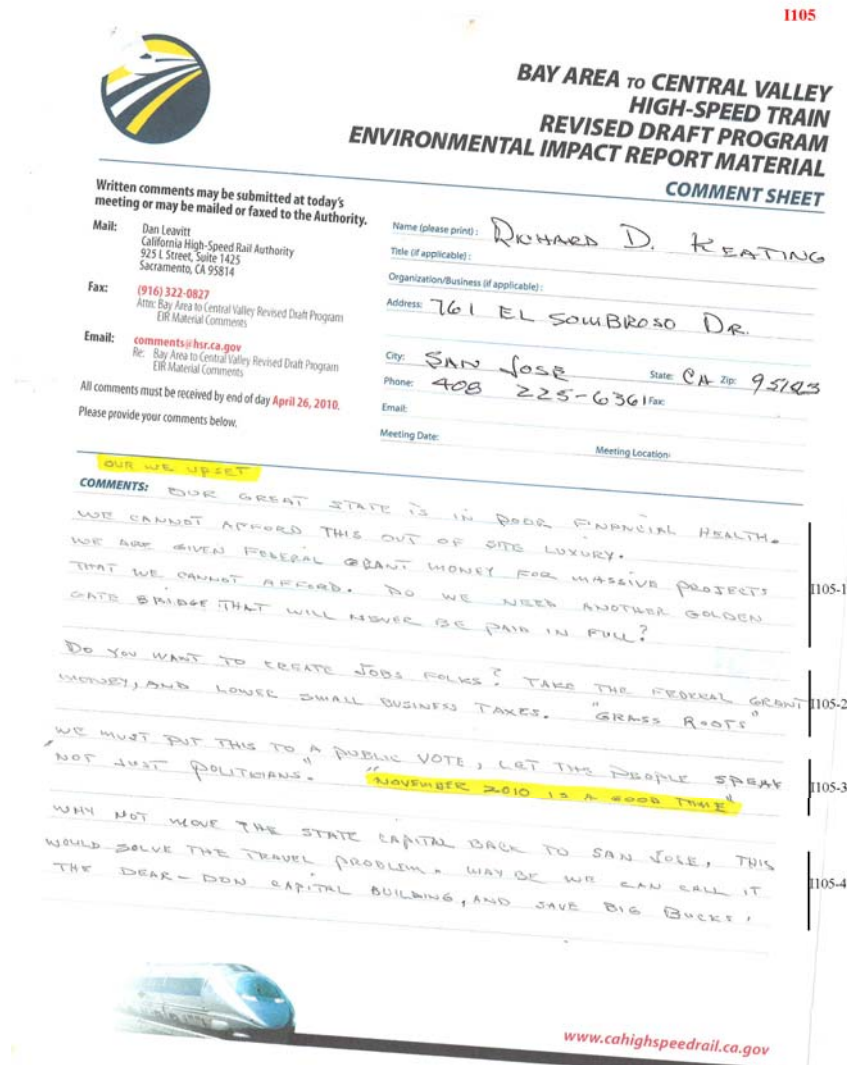 I105
BAY AREA TO CENTRAL VALLEY
HIGH-SPEED TRAIN
REVISED DRAFT PROGRAM
ENVIRONMENTAL IMPACT REPORT MATERIAL
COMMENT SHEET
Written comments may be submitted at today's
meeting or may be mailed or faxed to the Authority.
Mail: Dan Leavitt
California High-Speed Rail Authority
925 L Street, Suite 1425
Sacramento, CA 95814
Fax: (916) 322-0827
Attn: Bay Area to Central Valley Revised Draft Program
EIR Material Comments
Email: comments@hsr.ca.gov
Re: Bay Area to Central Valley Revised Draft Program
EIR Material Comments
All comments must be received by end of day April 26, 2010.
Please provide your comments below.
Name (please print): RICHARD D. KEATING
Title (if applicable):
Organization/Business (if applicable):
Address: 761 EL SOMBROSO DR.
City: SAN JOSE State: CA Zip: 95123
Phone: 408 225-6361 Fax:
Email:
Meeting Date: Meeting Location:
OUR WE UPSET
COMMENTS: OUR GREAT STATE IS IN POOR FINANCIAL HEALTH.
WE CANNOT AFFORD THIS OUT OF SITE LUXURY.
WE ARE GIVEN FEDERAL GRANT MONEY FOR MASSIVE PROJECTS
THAT WE CANNOT AFFORD. DO WE NEED ANOTHER GOLDEN
GATE BRIDGE THAT WILL NEVER BE PAID IN FULL?
I105-1
DO YOU WANT TO CREATE JOBS FOLKS? TAKE THE FEDERAL GRANT
MONEY, AND LOWER SMALL BUSINESS TAXES. "GRASS ROOTS"
I105-2
WE MUST PUT THIS TO A PUBLIC VOTE, LET THE PEOPLE SPEAK
"NOT JUST POLITICIANS." "NOVEMBER 2010 IS A GOOD TIME"
I105-3
WHY NOT MOVE THE STATE CAPITAL BACK TO SAN JOSE, THIS
WOULD SOLVE THE TRAVEL PROBLEM. MAYBE WE CAN CALL IT
THE DEAR-DON CAPITAL BUILDING, AND SAVE BIG BUCKS!
I105-4
www.cahighspeedrail.ca.gov